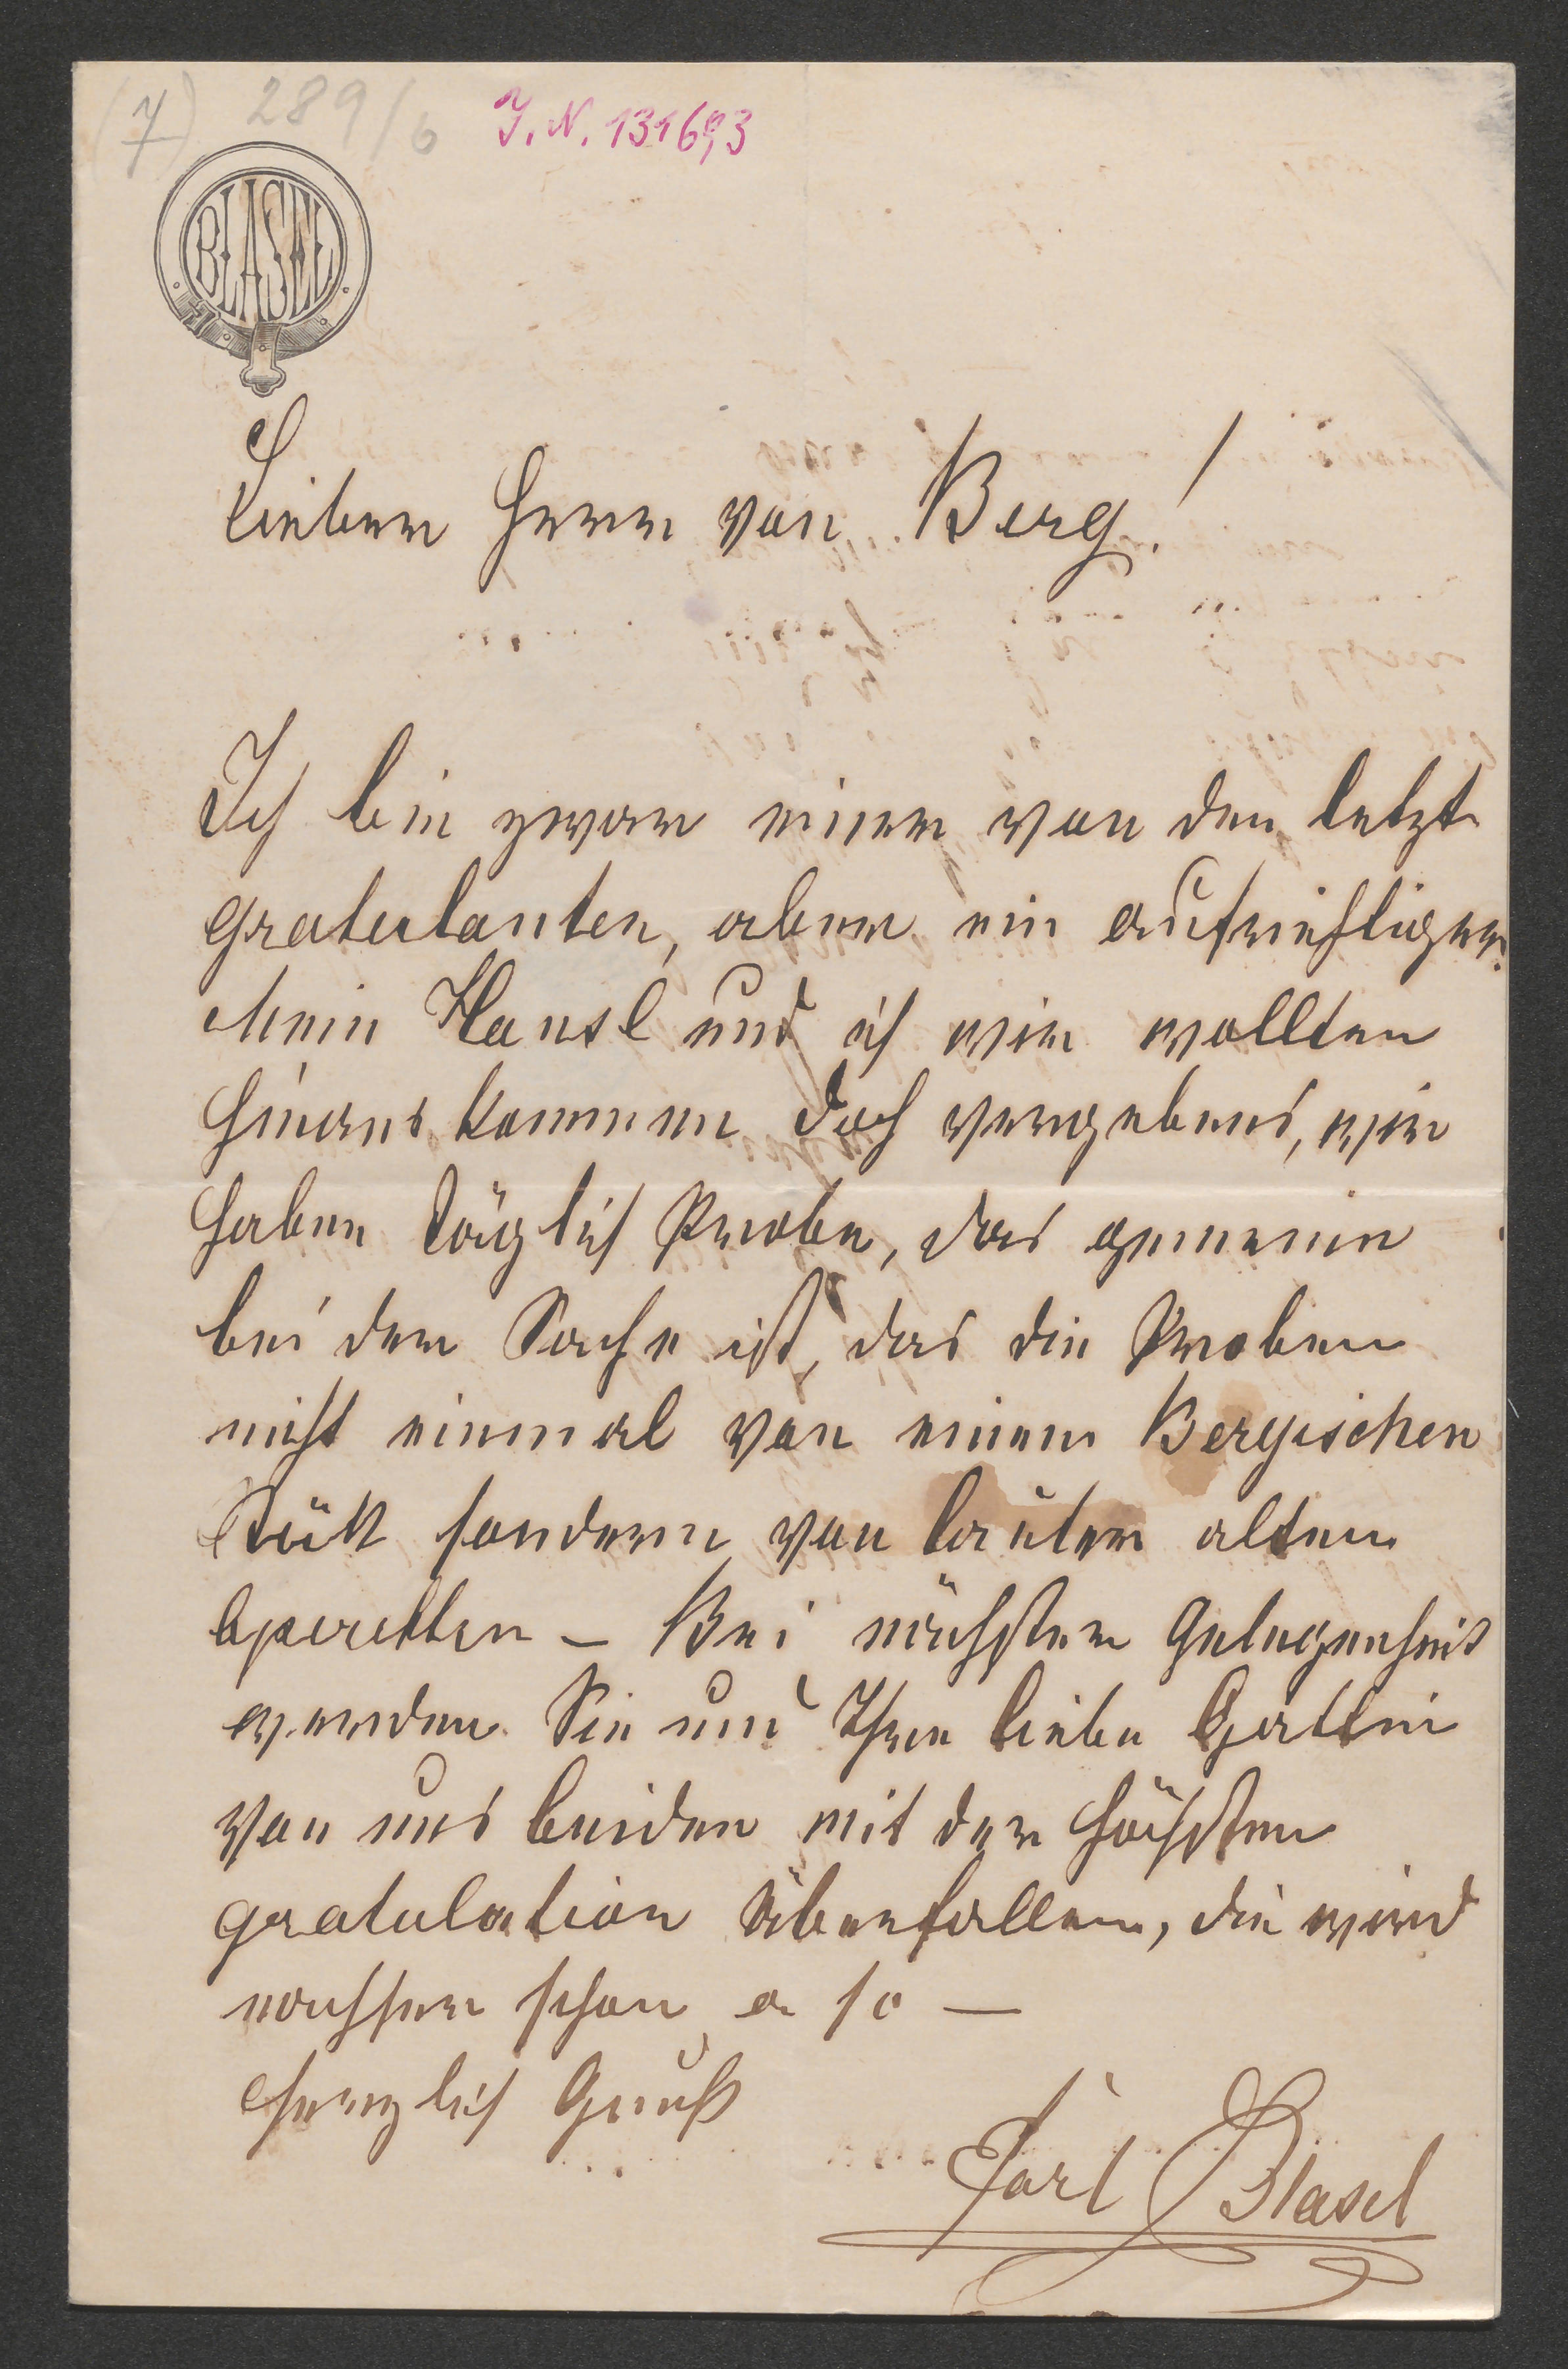 (7) 289/6 J. N. 131693
BLASEL
Lieber Herr von Berg!
Ich bin zwar einer von den letzt
gratulanten, aber ein aufrichtiger.
Mein Hansl und ich wir wollten
hinaus kommen doch vergebens, wir
haben täglich Probe, das gemeine
bei der Sache ist, das die Proben
nicht einmal von einem Bergischen
Stük sondern von lauter alten
Operetten – Bei nächster Gelegenheit
werden Sie und Ihre liebe Gattin
von uns beiden mit der höchsten
gratulation überfallen, die wird
nachher schon a so —
Herzlich Gruß
Carl Blasel